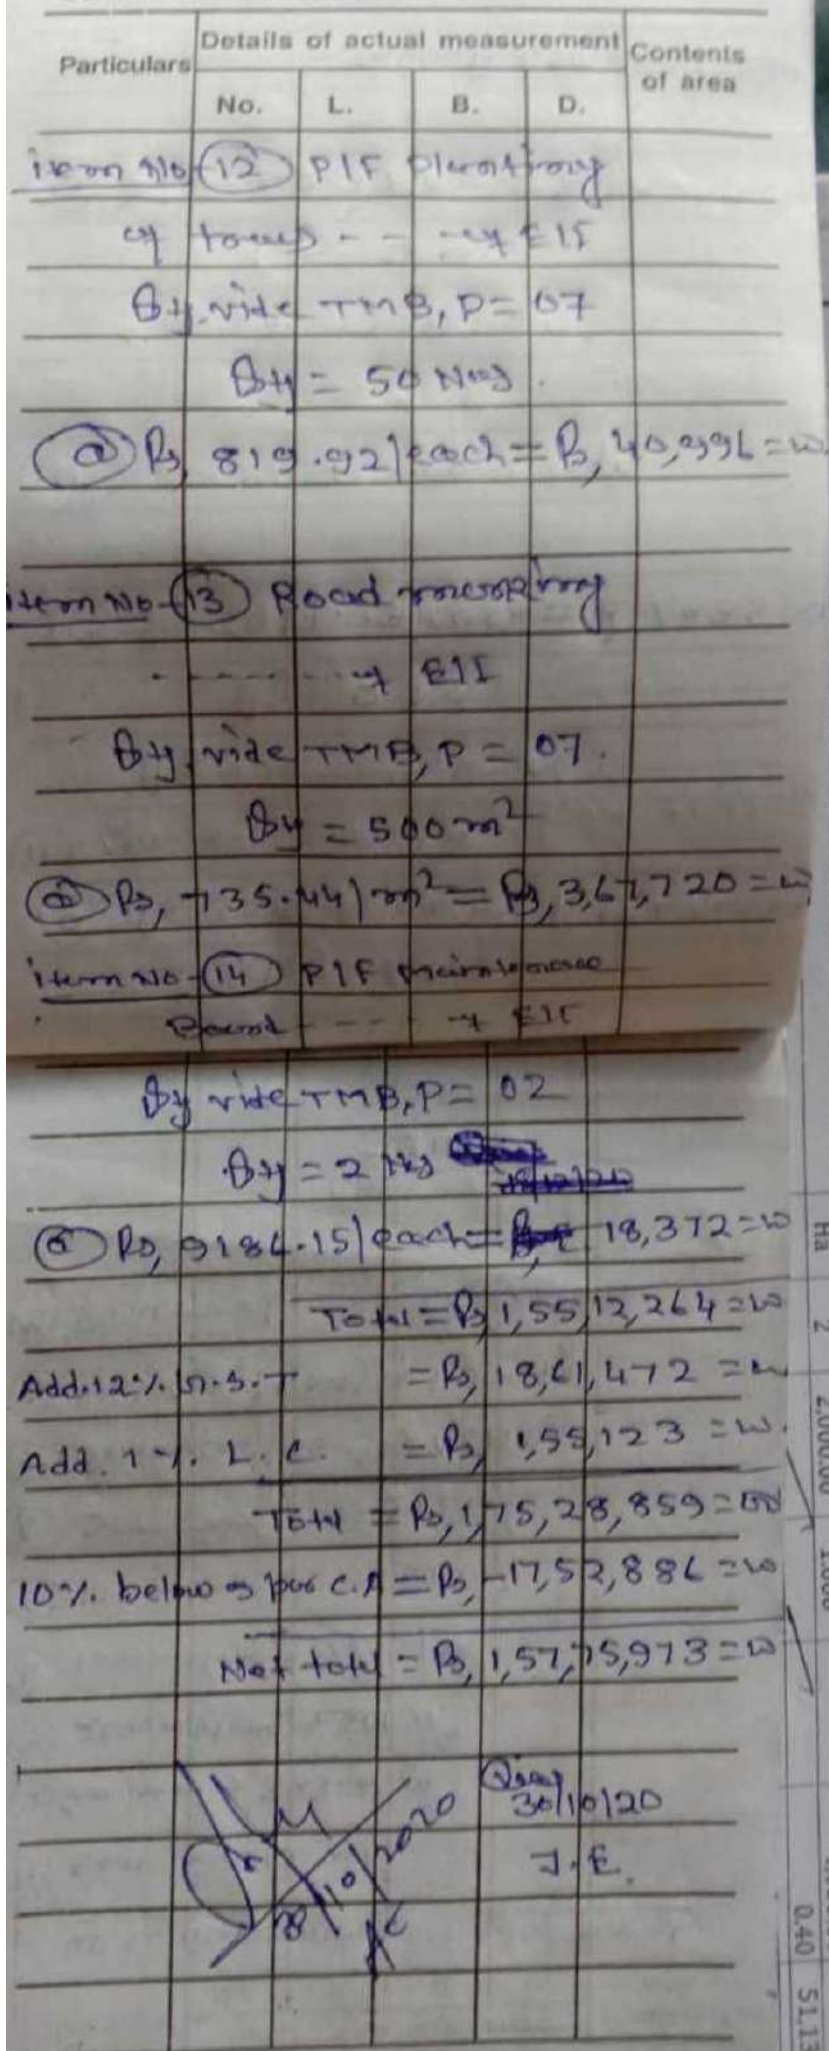 Particulars Details of actual measurement Contents of area
No. L. B. D.
item No-(12) P/F planting
of trees - - - of E/I
Qty vide TMB, P= 07
Qty = 50 Nos.
@ Rs, 819.92/each = Rs, 40,996=00
item No-(13) Road marking
- - - - - of E/I
Qty vide TMB, P = 07.
Qty = 500 m²
@ Rs, 735.44/m² = Rs, 3,67,720=00
item No-(14) P/F maintenance
Board - - - - of E/I
Qty vide TMB, P= 02
Qty = 2 Nos
@ Rs, 9186.15/each = 18,372=00
Total = Rs 1,55,12,264=00
Add. 12%. G.S.T = Rs, 18,61,472=00
Add. 1%. L.C. = Rs, 1,55,123=00.
Total = Rs, 1,75,28,859=00
10%. below as per C.A = Rs, -17,52,886=00
Net total = Rs, 1,57,75,973=00
30/10/20
J.E.
Ha 2 2,000.00 1.000
0.40 51.13